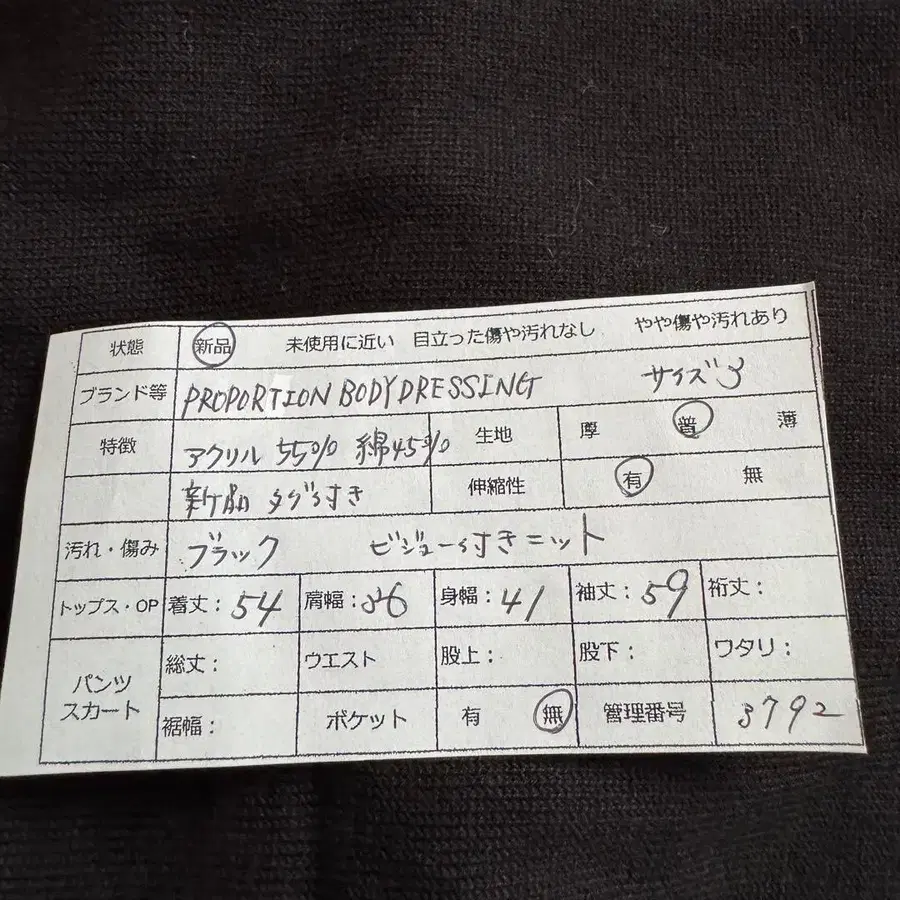 状態 新品 未使用に近い 目立った傷や汚れなし やや傷や汚れあり
ブランド等 PROPORTION BODYDRESSING サイズ 3
特徴 アクリル 55% 綿45% 生地 厚 普 薄
新品 タグ付き 伸縮性 有 無
汚れ・傷み ブラック ビジュー付きニット
トップス・OP 着丈：54 肩幅：36 身幅：41 袖丈：59 裄丈：
パンツ スカート 総丈： ウエスト 股上： 股下： ワタリ：
裾幅： ポケット 有 無 管理番号 3792